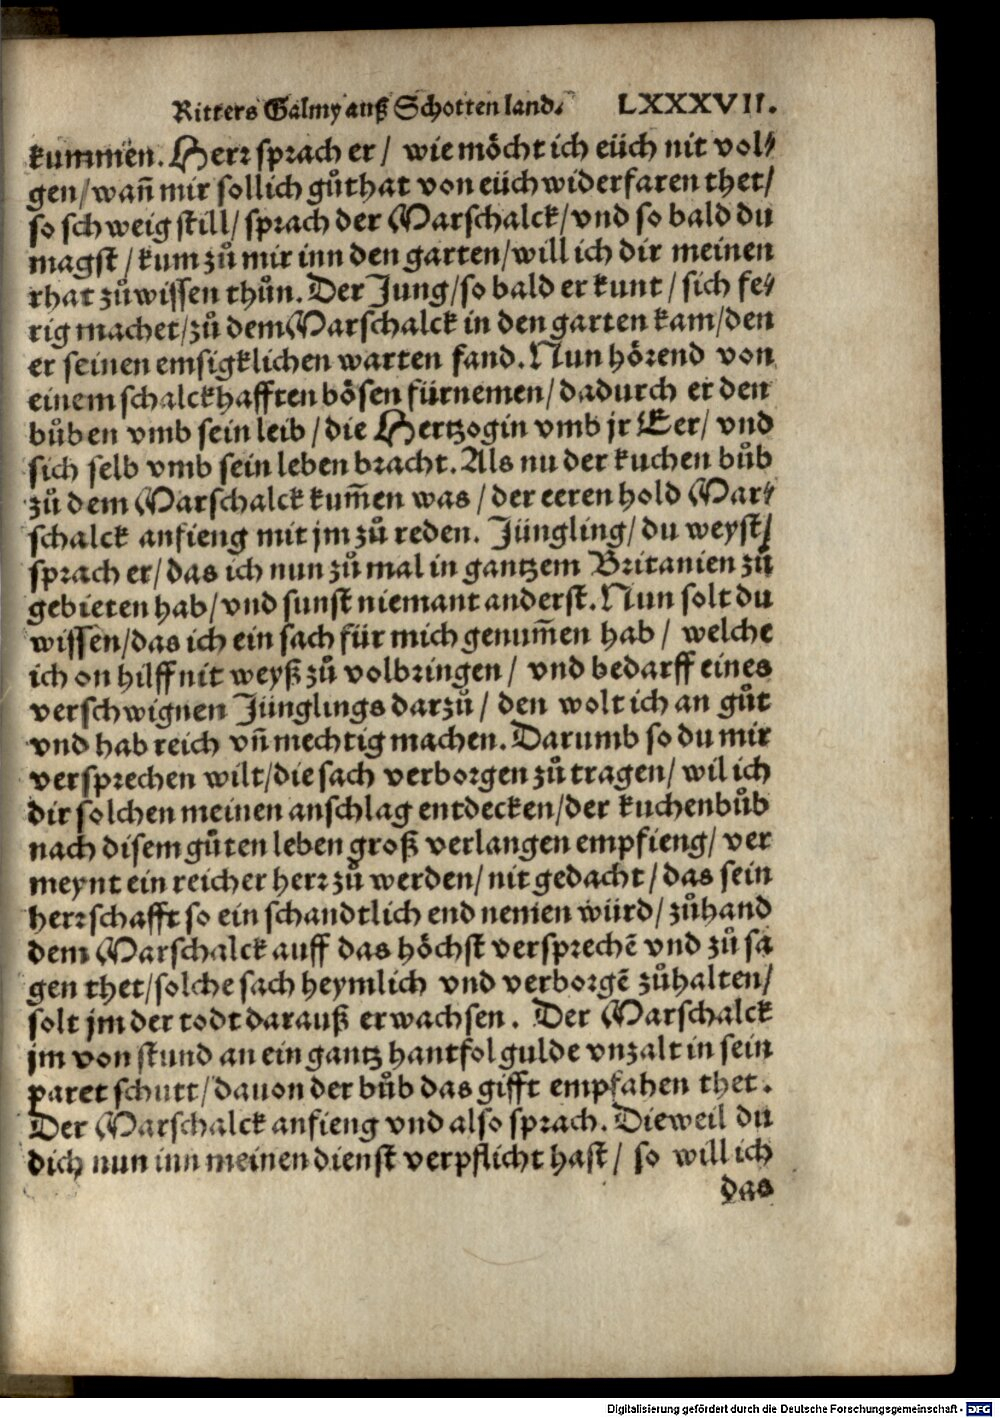 Ritters Galmy auß Schotten land. LXXXVII.
kummen. Herr sprach er / wie möcht ich eüch nit vol⸗
gen / wañ mir sollich gůthat von eüch widerfaren thet /
so schweig still / sprach der Marschalck / vnd so bald du
magst / kum zů mir inn den garten / will ich dir meinen
rhat zůwissen thůn. Der Jung / so bald er kunt / sich fe⸗
rig machet / zů dem Marschalck in den garten kam / den
er seinen emsigklichen warten fand. Nun hörend von
einem schalckhafften bösen fürnemen / dadurch er den
bůben vmb sein leib / die Hertzogin vmb jr Eer / vnd
sich selb vmb sein leben bracht. Als nu der kuchen bůb
zů dem Marschalck kum̃en was / der eeren hold Mar⸗
schalck anfieng mit jm zů reden. Jüngling / du weyst /
sprach er / das ich nun zů mal in gantzem Britanien zů
gebieten hab / vnd sunst niemant anderst. Nun solt du
wissen / das ich ein sach für mich genum̃en hab / welche
ich on hilff nit weyß zů volbringen / vnd bedarff eines
verschwignen Jünglings darzů / den wolt ich an gůt
vnd hab reich vñ mechtig machen. Darumb so du mir
versprechen wilt / die sach verborgen zů tragen / wil ich
dir solchen meinen anschlag entdecken / der kuchenbůb
nach disem gůten leben groß verlangen empfieng / ver
meynt ein reicher herr zů werden / nit gedacht / das sein
herrschafft so ein schandtlich end nemen würd / zůhand
dem Marschalck auff das höchst versprechẽ vnd zů sa
gen thet / solche sach heymlich vnd verborgẽ zůhalten /
solt jm der todt darauß erwachsen. Der Marschalck
jm von stund an ein gantz hantfol gulde vnzalt in sein
paret schutt / dauon der bůb das gifft empfahen thet.
Der Marschalck anfieng vnd also sprach. Dieweil du
dich nun inn meinen dienst verpflicht hast / so will ich
das
Digitalisierung gefördert durch die Deutsche Forschungsgemeinschaft - DFG